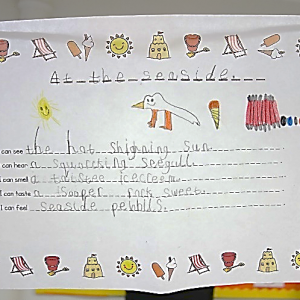 At the seaside.
I can see the hot shighning sun.
I can hear a squarcking seegull.
I can smell a tastee icecreem.
I can taste a sooper pork sweet.
I can feel seaside pebblls.